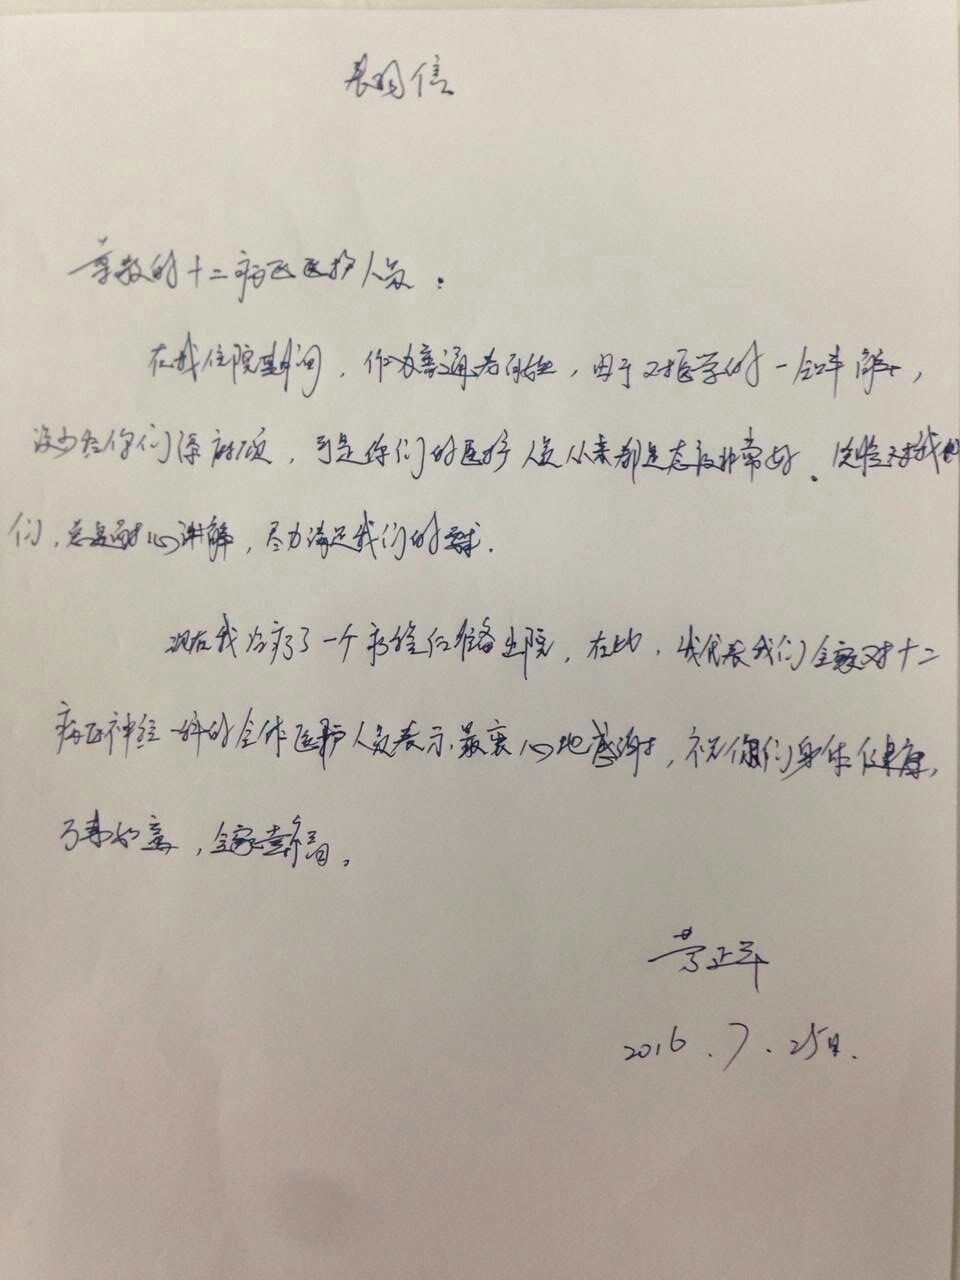 表扬信
尊敬的十二病区医护人员：
在我住院期间，作为普通老百姓，由于对医学的一知半解，
没少给你们添麻烦，可是你们的医护人员从来都是态度非常好。
们，总是耐心讲解，尽力满足我们的要求。
现在我治疗了一个疗程后准备出院，在此，我代表我们全家对十二
病区神经一科的全体医护人员表示最衷心地感谢，祝你们身体健康，
万事如意，全家幸福。
2016.7.25日.